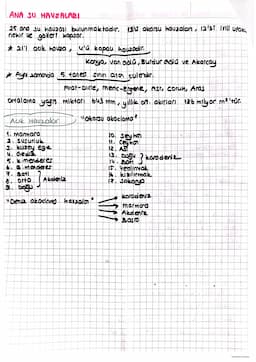 ANA SU HAVZALARI
25 ana su havzası bulunmaktadır. 13'ü akarsu havzaları, 12'si irili ufaklı
nehir ile gölleri kapsar.
* 21'i açık havza, 4'ü kapalı havzadır.
Konya, Van Gölü, Burdur Gölü ve Akarçay
* Aynı zamanda 5 tanesi sınır aşan sulardır.
Fırat-Dicle, Meriç-Ergene, Asi, Çoruh, Aras
Ortalama yağış miktarı 643 mm, yıllık ort. akarları 186 milyar m³'tür.
Açık Havzalar "Okyanus akaçlama"
1. Marmara
2. Susurluk
3. Kuzey Ege
4. Gediz
5. K. Menderes
6. B. Menderes
7. Batı
8. Orta } Akdeniz
9. Doğu
10. Seyhan
11. Ceyhan
12. Asi
13. Doğu } Karadeniz
14. Batı
15. Yeşilırmak
16. Kızılırmak
17. Sakarya
"Deniz akaçlama havzaları"
Karadeniz
Marmara
Akdeniz